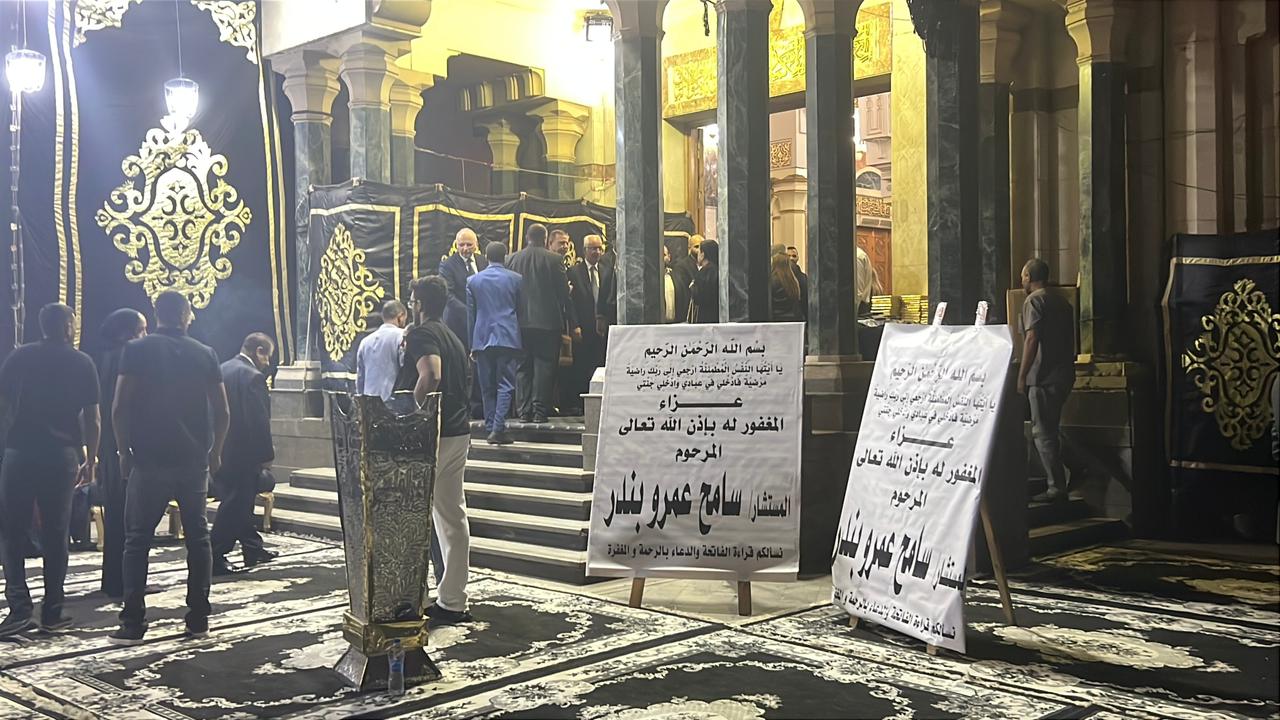 بسم الله الرحمن الرحيم
يا أيتها النفس المطمئنة ارجعي إلى ربك راضية
مرضية فادخلي في عبادي وادخلي جنتي
عـــزاء
المغفور له بإذن الله تعالى
المرحوم
المستشار/ سامح عمرو بندر
نسألكم قراءة الفاتحة والدعاء بالرحمة و المغفرة
بسم الله الرحمن الرحيم
يا أيتها النفس المطمئنة ارجعي إلى ربك راضية
مرضية فادخلي في عبادي وادخلي جنتي
عـــزاء
المغفور له بإذن الله تعالى
المرحوم
المستشار/ سامح عمرو بندر
نسألكم قراءة الفاتحة والدعاء بالرحمة و